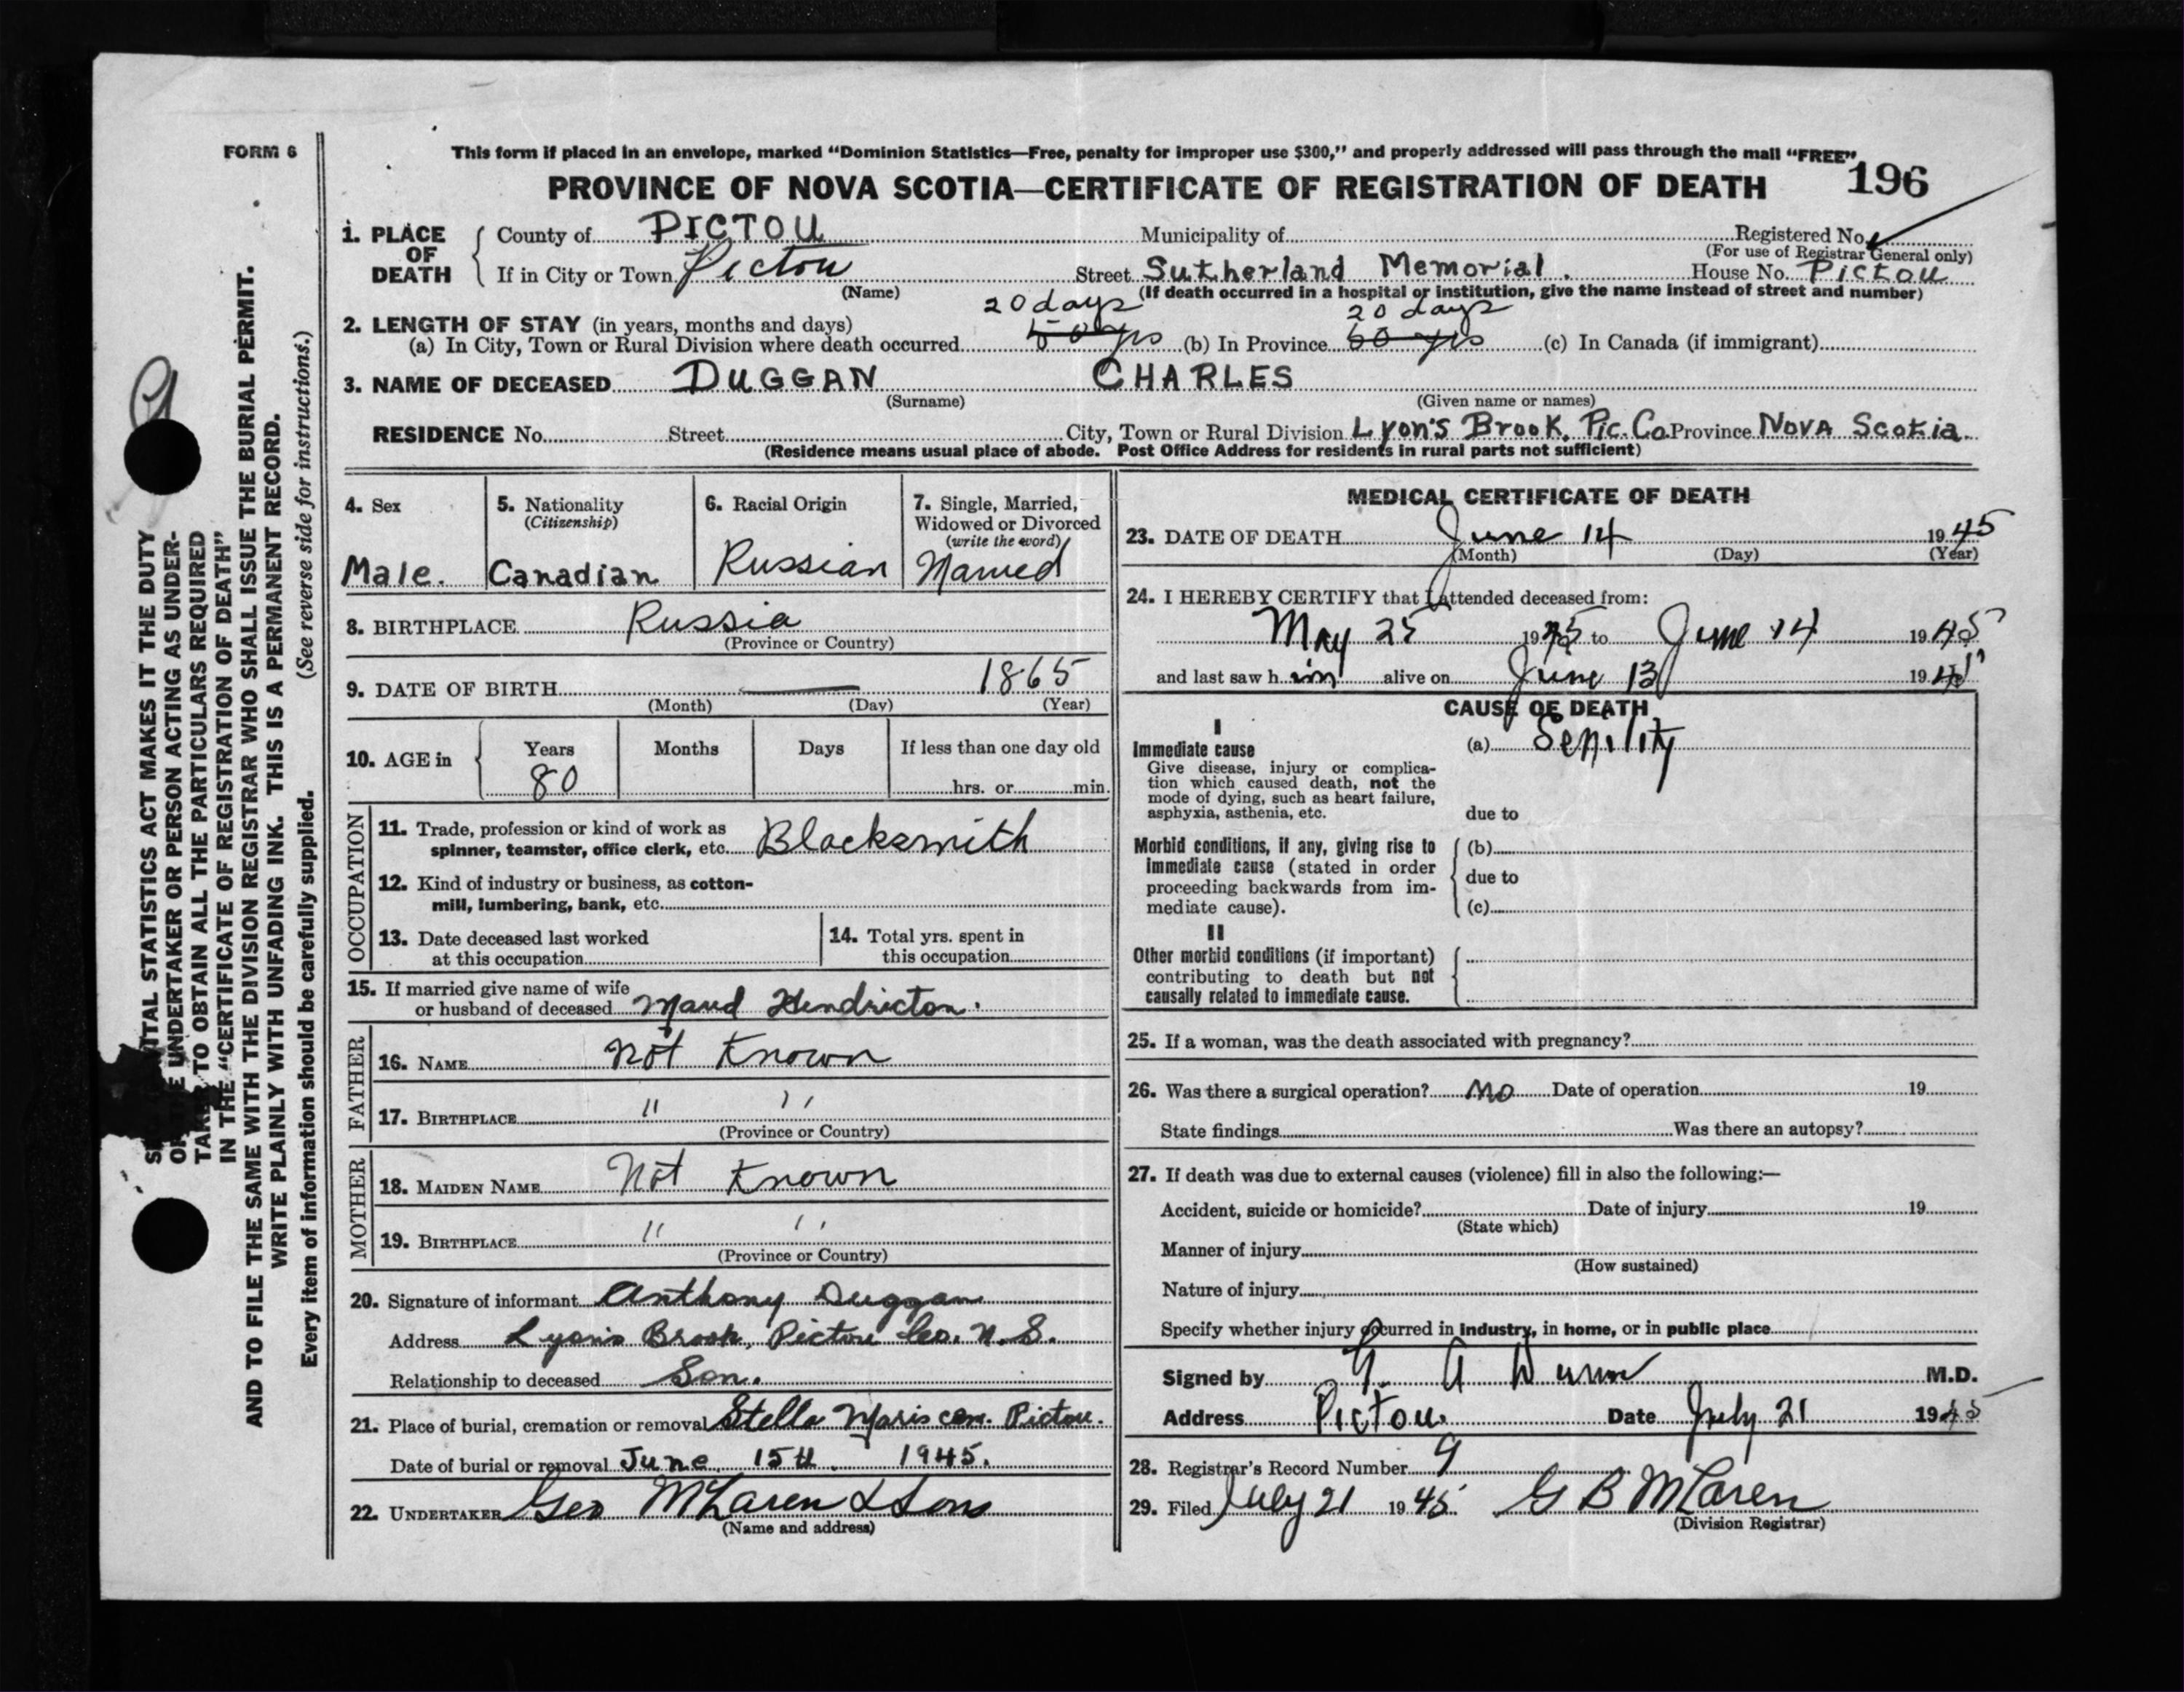 FORM 6
This form if placed in an envelope, marked “Dominion Statistics—Free, penalty for improper use $300,” and properly addressed will pass through the mail “FREE”
PROVINCE OF NOVA SCOTIA—CERTIFICATE OF REGISTRATION OF DEATH 196
1. PLACE OF DEATH
County of PICTOU Municipality of Registered No.
(For use of Registrar General only)
If in City or Town Pictou Street Sutherland Memorial. House No. Pictou
(Name) (If death occurred in a hospital or institution, give the name instead of street and number)
20 days 20 days
2. LENGTH OF STAY (in years, months and days)
(a) In City, Town or Rural Division where death occurred yrs (b) In Province 60 yrs (c) In Canada (if immigrant)
3. NAME OF DECEASED DUGGAN CHARLES
(Surname) (Given name or names)
RESIDENCE No. Street City, Town or Rural Division Lyon's Brook, Pic. Co. Province Nova Scotia
(Residence means usual place of abode. Post Office Address for residents in rural parts not sufficient)
4. Sex
Male.
5. Nationality
(Citizenship)
Canadian
6. Racial Origin
Russian
7. Single, Married,
Widowed or Divorced
(write the word)
Married
8. BIRTHPLACE Russia
(Province or Country)
9. DATE OF BIRTH — 1865
(Month) (Day) (Year)
10. AGE in Years Months Days If less than one day old
80 hrs. or min.
OCCUPATION
11. Trade, profession or kind of work as
spinner, teamster, office clerk, etc. Blacksmith
12. Kind of industry or business, as cotton-
mill, lumbering, bank, etc.
13. Date deceased last worked
at this occupation
14. Total yrs. spent in
this occupation
15. If married give name of wife
or husband of deceased Maud Hendricton.
FATHER
16. NAME Not Known
17. BIRTHPLACE " "
(Province or Country)
MOTHER
18. MAIDEN NAME Not Known
19. BIRTHPLACE " "
(Province or Country)
20. Signature of informant Anthony Duggan
Address Lyons Brook, Pictou Co. N. S.
Relationship to deceased Son.
21. Place of burial, cremation or removal Stella Maris cem. Pictou.
Date of burial or removal June 15th 1945.
22. UNDERTAKER Geo McLaren & Sons
(Name and address)
MEDICAL CERTIFICATE OF DEATH
23. DATE OF DEATH June 14 1945
(Month) (Day) (Year)
24. I HEREBY CERTIFY that I attended deceased from:
May 25 1945 to June 14 1945
and last saw him alive on June 13 1945
CAUSE OF DEATH
I
Immediate cause (a) Senility
Give disease, injury or complica-
tion which caused death, not the
mode of dying, such as heart failure,
asphyxia, asthenia, etc. due to
Morbid conditions, if any, giving rise to (b)
immediate cause (stated in order
proceeding backwards from im- due to
mediate cause). (c)
II
Other morbid conditions (if important)
contributing to death but not
causally related to immediate cause.
25. If a woman, was the death associated with pregnancy?
26. Was there a surgical operation? No Date of operation 19
State findings Was there an autopsy?
27. If death was due to external causes (violence) fill in also the following:—
Accident, suicide or homicide? Date of injury 19
(State which)
Manner of injury
(How sustained)
Nature of injury
Specify whether injury occurred in industry, in home, or in public place
Signed by G. A Dunn M.D.
Address Pictou. Date July 21 1945
28. Registrar's Record Number 9
29. Filed July 21 1945. G B McLaren
(Division Registrar)
ITAL STATISTICS ACT MAKES IT THE DUTY
UNDERTAKER OR PERSON ACTING AS UNDER-
TO OBTAIN ALL THE PARTICULARS REQUIRED
IN THE “CERTIFICATE OF REGISTRATION OF DEATH”
AND TO FILE THE SAME WITH THE DIVISION REGISTRAR WHO SHALL ISSUE THE BURIAL PERMIT.
WRITE PLAINLY WITH UNFADING INK. THIS IS A PERMANENT RECORD.
Every item of information should be carefully supplied. (See reverse side for instructions.)